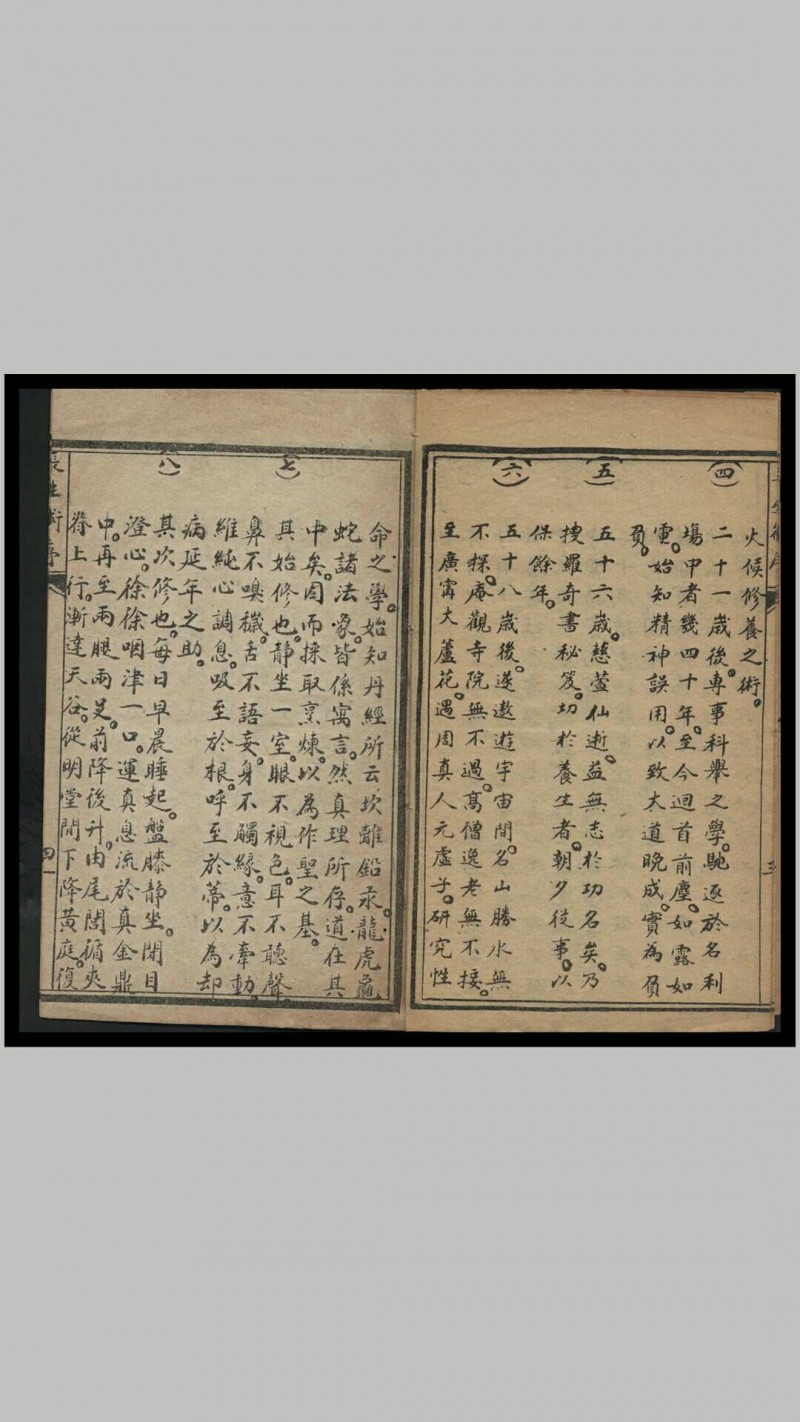 火候修養之術。
(四)
二十一歲後。專事科舉之學。馳逐於名利
塲中者。幾四十年。至今迴首前塵。如露如
電。始知精神誤用。以致大道晚成。實為負
負。
(五)
五十六歲。慈萱仙逝。益無志於功名矣。乃
搜羅奇書秘笈。切於養生者。朝夕從事。以
保餘年。
(六)
五十八歲後。遂遨遊宇宙間。名山勝水無
不探。庵觀寺院無不過。高僧逸老無不接。
至廣甯大蘆花。遇周真人元虛子。研究性
命之學。始知丹經所云坎離鉛汞。龍虎龜
蛇諸法象。皆係寓言。然真理所存。道在其
中矣。因而採取烹煉。以為作聖之基。
(七)
其始修也。靜坐一室。眼不視色。耳不聽聲。
鼻不嗅穢。舌不語妄。身不觸緣。意不牽動。
維純心調息。吸至於根。呼至於蒂。以為却
病延年之助。
(八)
其次修也。每日早晨睡起。盤膝静坐。閉目
澄心。徐徐咽津一口。運真息流於真金鼎
中。再至兩腿兩足。前降後升。由尾閭循夾
脊上行。漸達天谷。從明堂間下降黃庭。復
長生術序
四